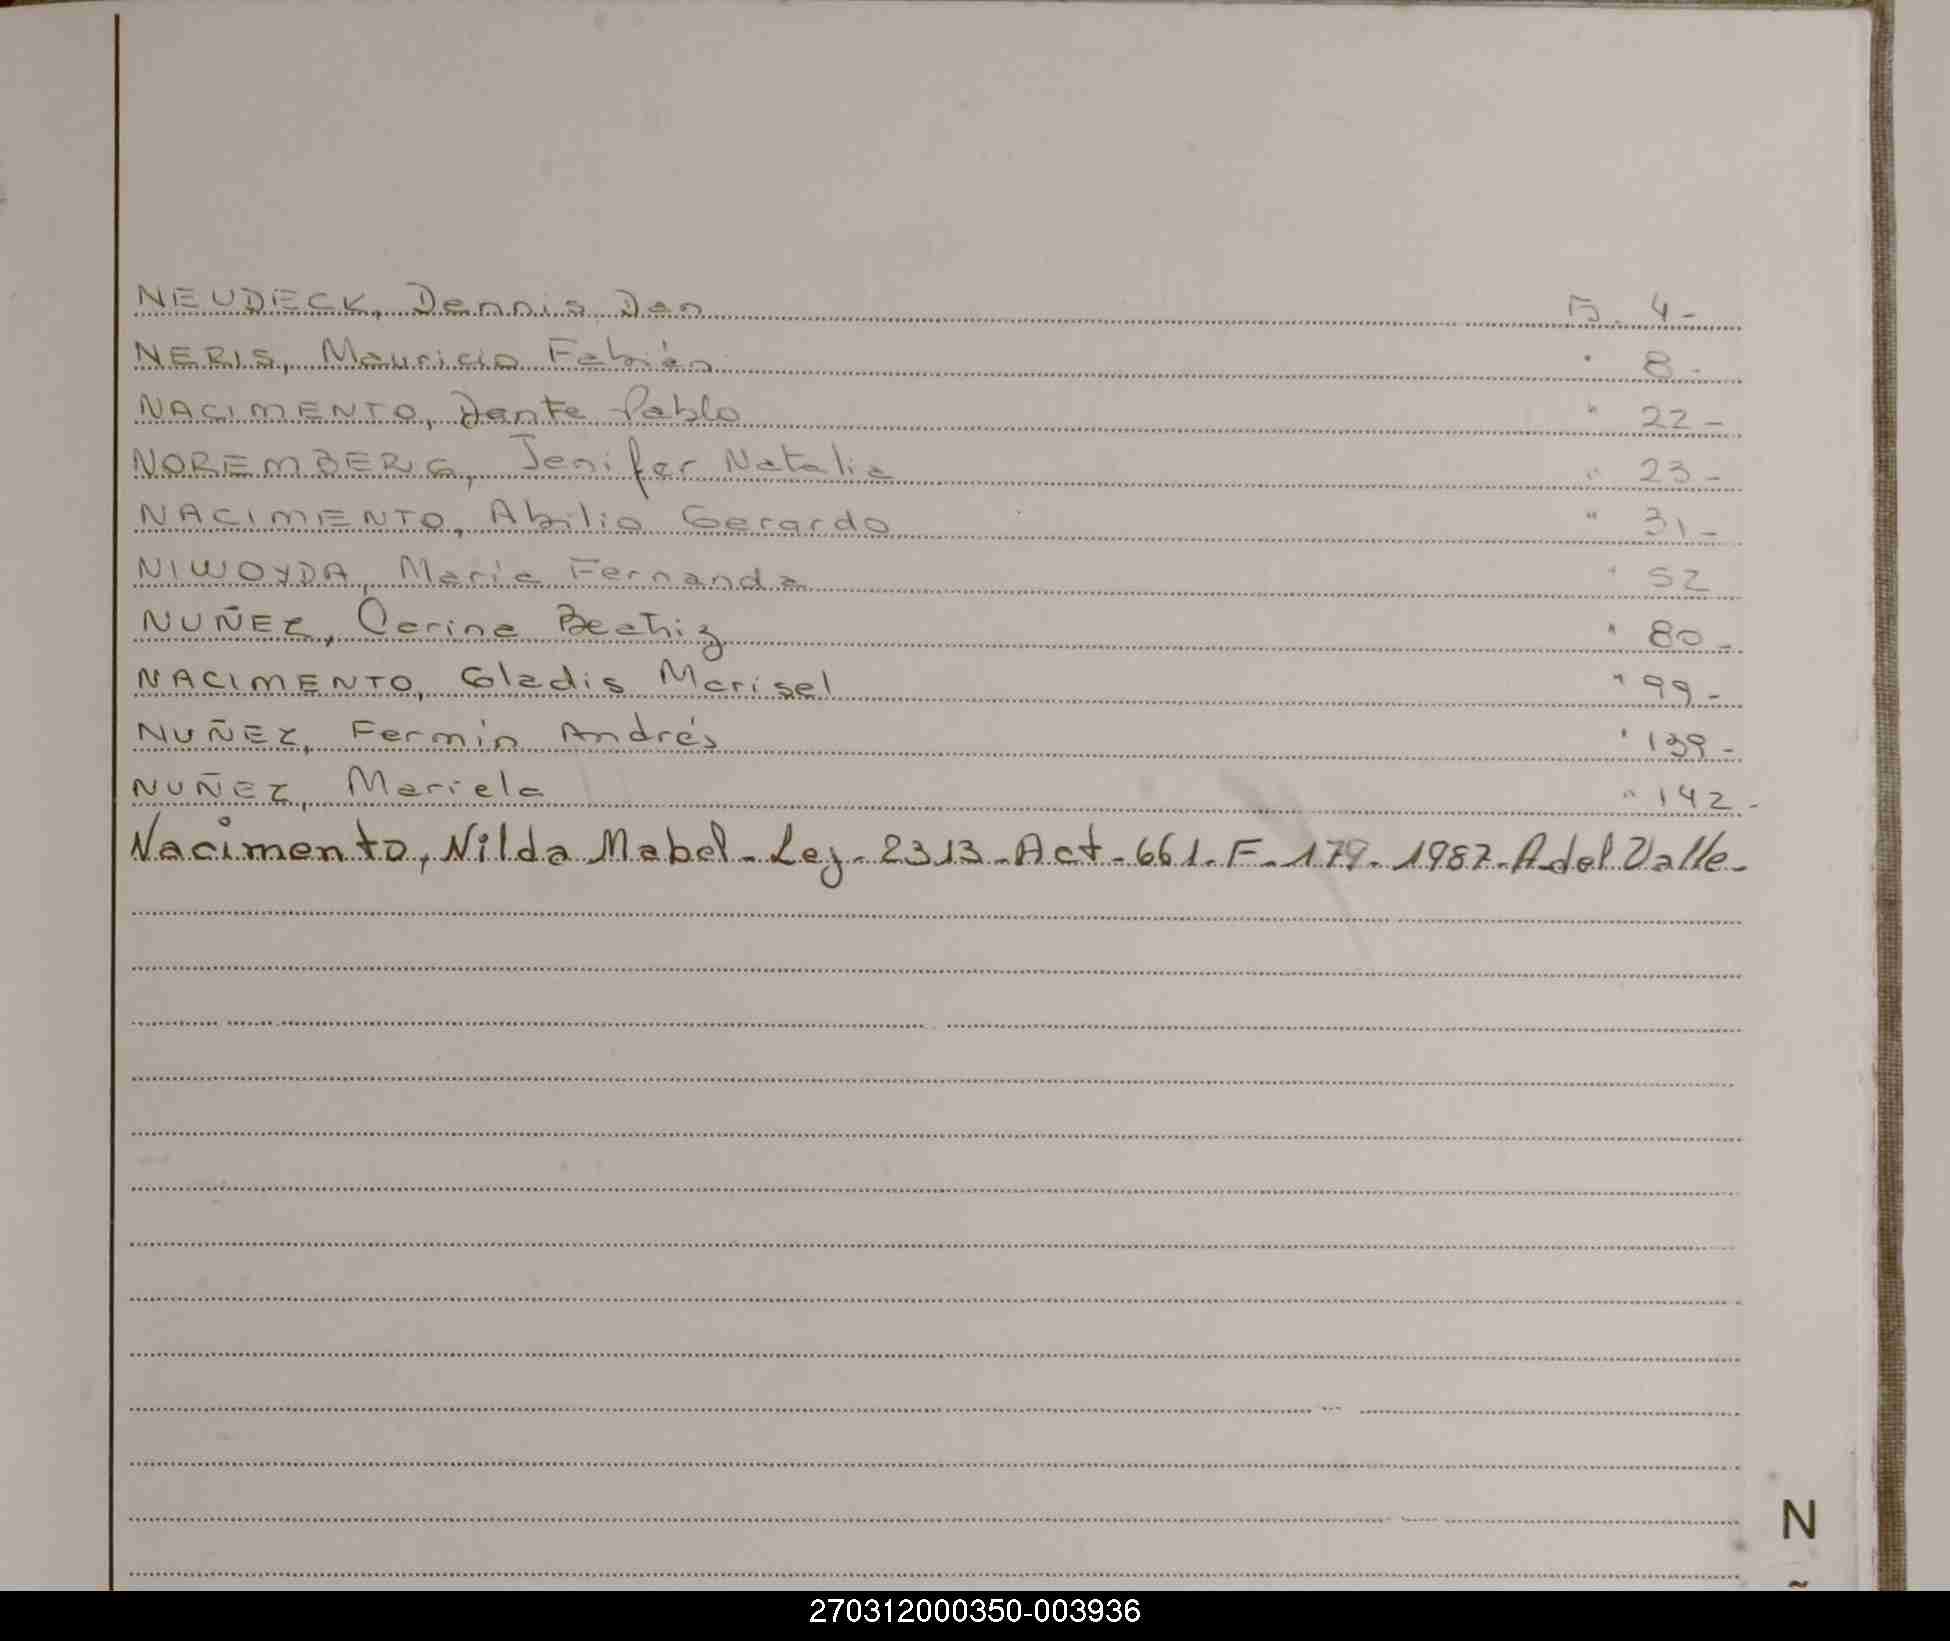 NEUDECK, Dennis Dan F. 4-
NERIS, Mauricio Fabián " 8-
NACIMENTO, Dante Pablo " 22-
NOREMBERG, Jenifer Natalia " 23-
NACIMENTO, Abilio Gerardo " 31-
NIWOYDA, María Fernanda " 52
NUÑEZ, Carina Beatriz " 80-
NACIMENTO, Gladis Marisel " 99-
NUÑEZ, Fermín Andrés " 139-
NUÑEZ, Mariela " 142-
Nacimento, Nilda Mabel - Ley - 2313 - Act - 661 - F - 179 - 1987 - A del Valle -
N
270312000350-003936